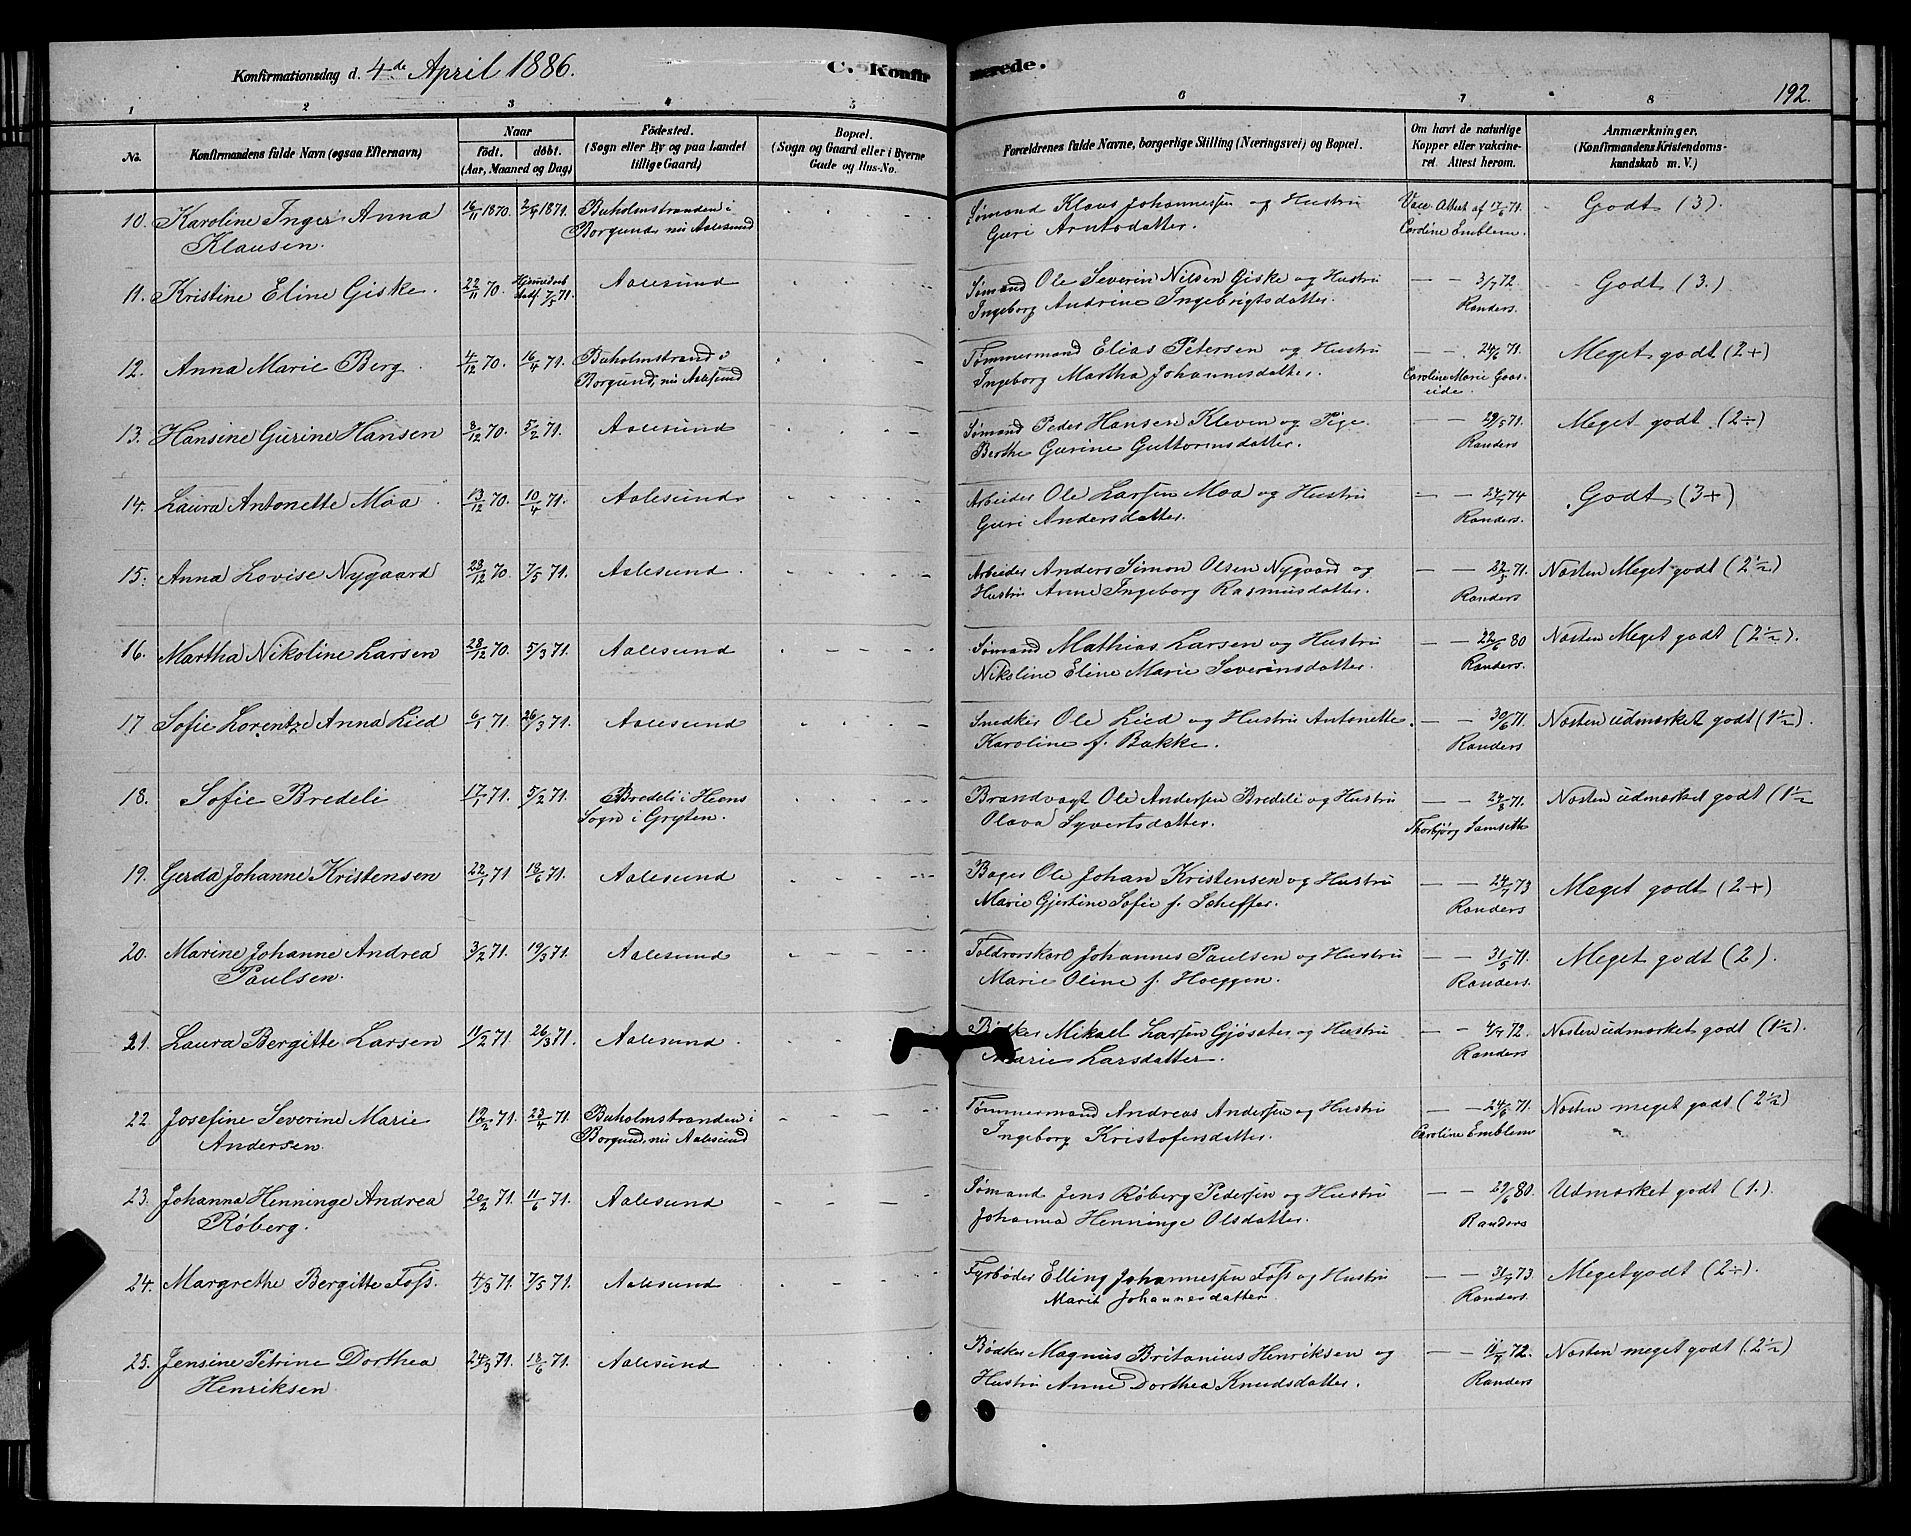 Konfirmationsdag d. 4de April 1886.
C. Konfirmerede.
192.
1 2 3 4 5 6 7 8
No.
Konfirmandens fulde Navn (ogsaa Efternavn)
Naar
födt. döbt.
(Aar, Maaned og Dag)
Födested.
(Sogn eller By og paa Landet
tillige Gaard)
Bopæl.
(Sogn og Gaard eller i Byerne
Gade og Hus-No.
Forældrenes fulde Navne, borgerlige Stilling (Næringsvei) og Bopæl.
Om havt de naturlige
Kopper eller vakcine-
ret. Attest herom.
Anmærkninger.
(Konfirmandens Kristendoms-
kundskab m. V.)
10. Karoline Inger Anna 16/11 1870. 2/4 1871. Buholmstranden i Sømand Klaus Johannessen og Hustru Vacc. Attest af 17/6 71. Godt (3).
Klausen. Borgund, nu Aalesund Guri Arntsdatter. Caroline Emblem.
11. Kristine Eline Giske. 22/11 70. Hjemmedøbt stadf. 7/5 71. Aalesund Sømand Ole Severin Nilsen Giske og Hustru — — 3/7 72. Godt (3.)
Ingeborg Andrine Ingebrigtsdatter. Randers.
12. Anna Marie Berg 4/12 70. 16/4 71. Buholmstrand i Tømmermand Elias Petersen og Hustru — — 24/6 71. Meget godt (2+)
Borgund, nu Aalesund Ingeborg Martha Johannesdatter. Caroline Marie Gaas-
eide.
13. Hansine Gurine Hansen 8/12 70. 5/2 71. Aalesund Sømand Peder Hansen Kleven og Pige — — 29/5 71. Meget godt (2÷)
Berthe Gurine Guttormsdatter. Randers
14. Laura Antonette Moa 13/12 70. 10/4 71. Aalesund Arbeider Ole Larsen Moa og Hustru — — 24/7 74 Godt (3+)
Guri Andersdatter. Randers.
15. Anna Lovise Nygaard 23/12 70. 7/5 71. Aalesund Arbeider Anders Simon Olsen Nygaard og — — 22/5 71. Næsten Meget godt (2½)
Hustru Anne Ingeborg Rasmusdatter. Randers
16. Martha Nikoline Larsen 28/12 70. 5/3 71. Aalesund Sømand Mathias Larsen og Hustru — — 22/6 80 Næsten Meget godt (2½).
Nikoline Eline Marie Severinsdatter. Randers.
17 Sofie Lorentze Anna Lied 6/1 71. 26/3 71. Aalesund Snedker Ole Lied og Hustru Antonette — — 30/6 71. Næsten udmærket godt (1½).
Karoline f. Bakke. Randers
18. Sofie Bredeli 17/1 71. 5/2 71. Bredeli i Heens Brandvagt Ole Andersen Bredeli og Hustru — — 24/8 71. Næsten udmærket godt (1½
Sogn i Gryten. Olava Syvertsdatter. Thorbjørg Samseth
19. Gerda Johanne Kristensen 22/1 71 18/6 71. Aalesund Bager Ole Johan Kristensen og Hustru — — 24/7 73 Meget godt (2+)
Marie Gjertine Sofie f. Scheffer. Randers
20. Marine Johanne Andrea 3/2 71. 19/3 71. Aalesund Toldrorskarl Johannes Paulsen og Hustru — — 31/5 71. Meget godt (2).
Paulsen. Marie Oline f. Hoeggen. Randers.
21. Laura Bergitte Larsen 11/2 71. 26/3 71. Aalesund Bødker Mikael Larsen Gjøsater og Hustru — — 4/7 72. Næsten udmærket godt (1½).
Marie Larsdatter. Randers
22 Josefine Severine Marie 12/2 71. 23/4 71. Buholmstranden i Tømmermand Andreas Andersen og Hustru — — 24/6 71. Næsten meget godt (2½)
Andersen. Borgund, nu Aalesund Ingeborg Kristofersdatter. Caroline Emblem
23. Johanna Henninge Andrea 20/2 71. 11/6 71. Aalesund Sømand Jens Røberg Pedersen og Hustru — — 29/6 80. Udmærket godt (1.)
Røberg. Johanna Henninge Olsdatter. Randers
24. Margrethe Bergitte Foss. 4/3 71. 7/5 71. Aalesund Fyrbøder Elling Johannessen Foss og Hustru — — 31/7 73 Meget godt (2÷).
Marit Johannesdatter. Randers
25. Jensine Petrine Dorthea 24/3 71. 18/6 71. Aalesund Bødker Magnus Britanius Henriksen og — — 11/7 72. Næsten meget godt (2½)
Henriksen Hustru Anne Dorthea Knudsdatter. Randers